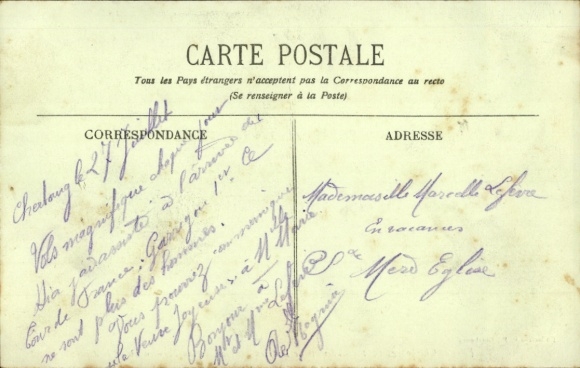 CARTE POSTALE
Tous les Pays étrangers n'acceptent pas la Correspondance au recto
(Se renseigner à la Poste)
CORRESPONDANCE
Cherbourg le 27 Juillet
Vols magnifiques chaque jour
Hier j'ai assisté à l'arrivée du
Tour de France. Garrigou 1er. Ce
ne sont plus des hommes.
Vous pouvez en musique
"la Veuve Joyeuse" à Mlle Marie
Bonjour à
Mr et Mme Lefevre
ADRESSE
Mademoiselle Marcelle Lefevre
En vacances
Mere Eglise